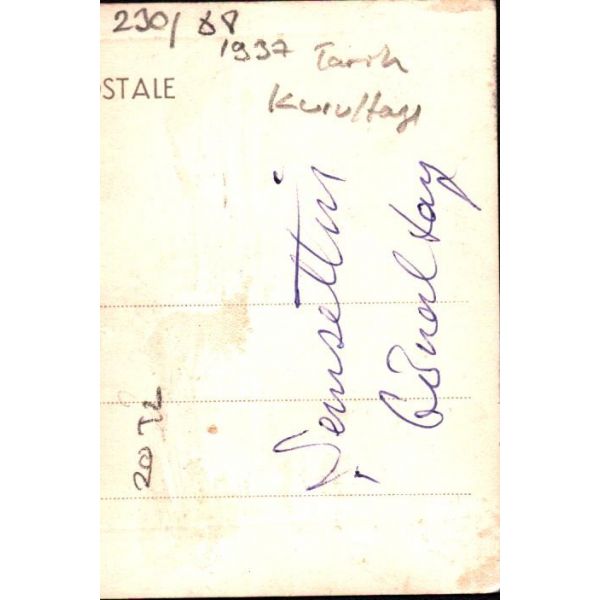 230/88
1937 Tarih
Kurultayı
STALE
Şemsettin
Günaltay
20 TL